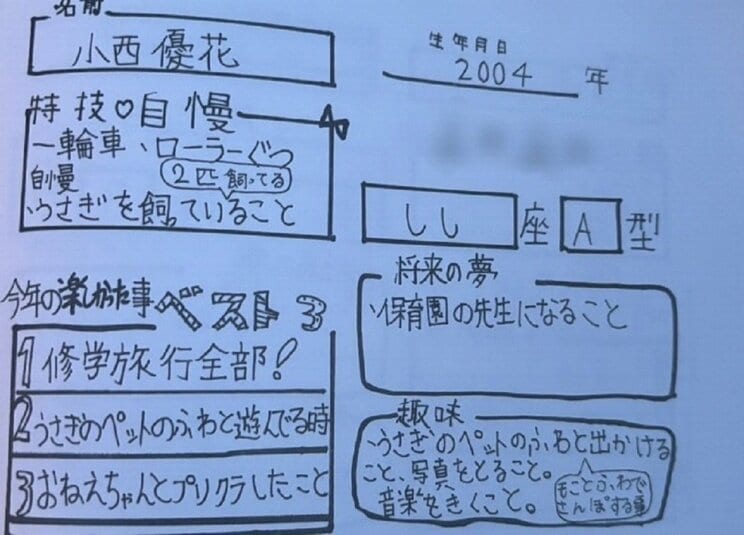 名前
小西優花
生年月日
2004年
特技♡自慢
一輪車、ローラーぐつ
自慢
2匹飼ってる
うさぎを飼っていること
しし座 A型
将来の夢
保育園の先生になること
今年の楽しかった事ベスト3
1 修学旅行全部!
2 うさぎのペットのふわと遊んでる時
3 おねえちゃんとプリクラしたこと
趣味
うさぎのペットのふわと出かける
こと、写真をとること。
音楽をきくこと。
もことふわで
さんぽする事